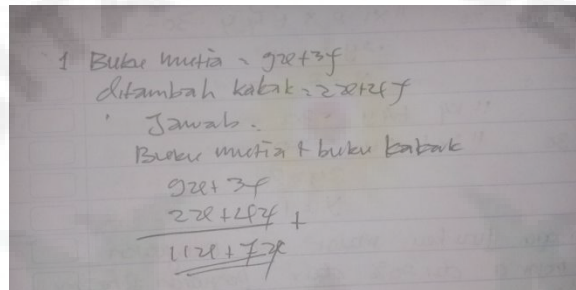 1 Buku mutia = 9x+3y
ditambah kakak = 2x+4y
Jawab.
Buku mutia + buku kakak
9x+3y
2x+4y +
11x+7x